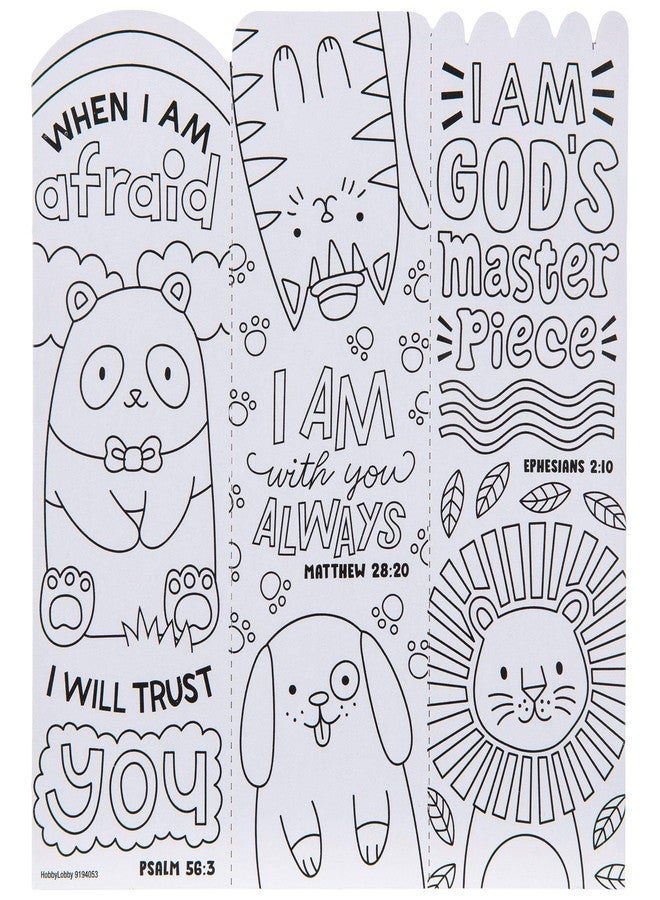 WHEN I AM
afraid
I WILL TRUST
you
PSALM 56:3
HobbyLobby 9194053
I AM
with you
ALWAYS
MATTHEW 28:20
I AM
GOD'S
master
Piece
EPHESIANS 2:10